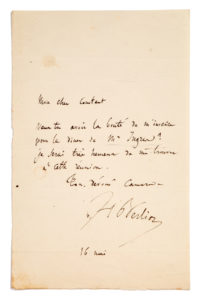 Mon cher Constant
Veux tu avoir la bonté de m'inscrire
pour le diner de Mr Ingres?
je serai très heureux de me trouver
à cette réunion.
Ton dévoué Camarade
H Berlioz
16 mai